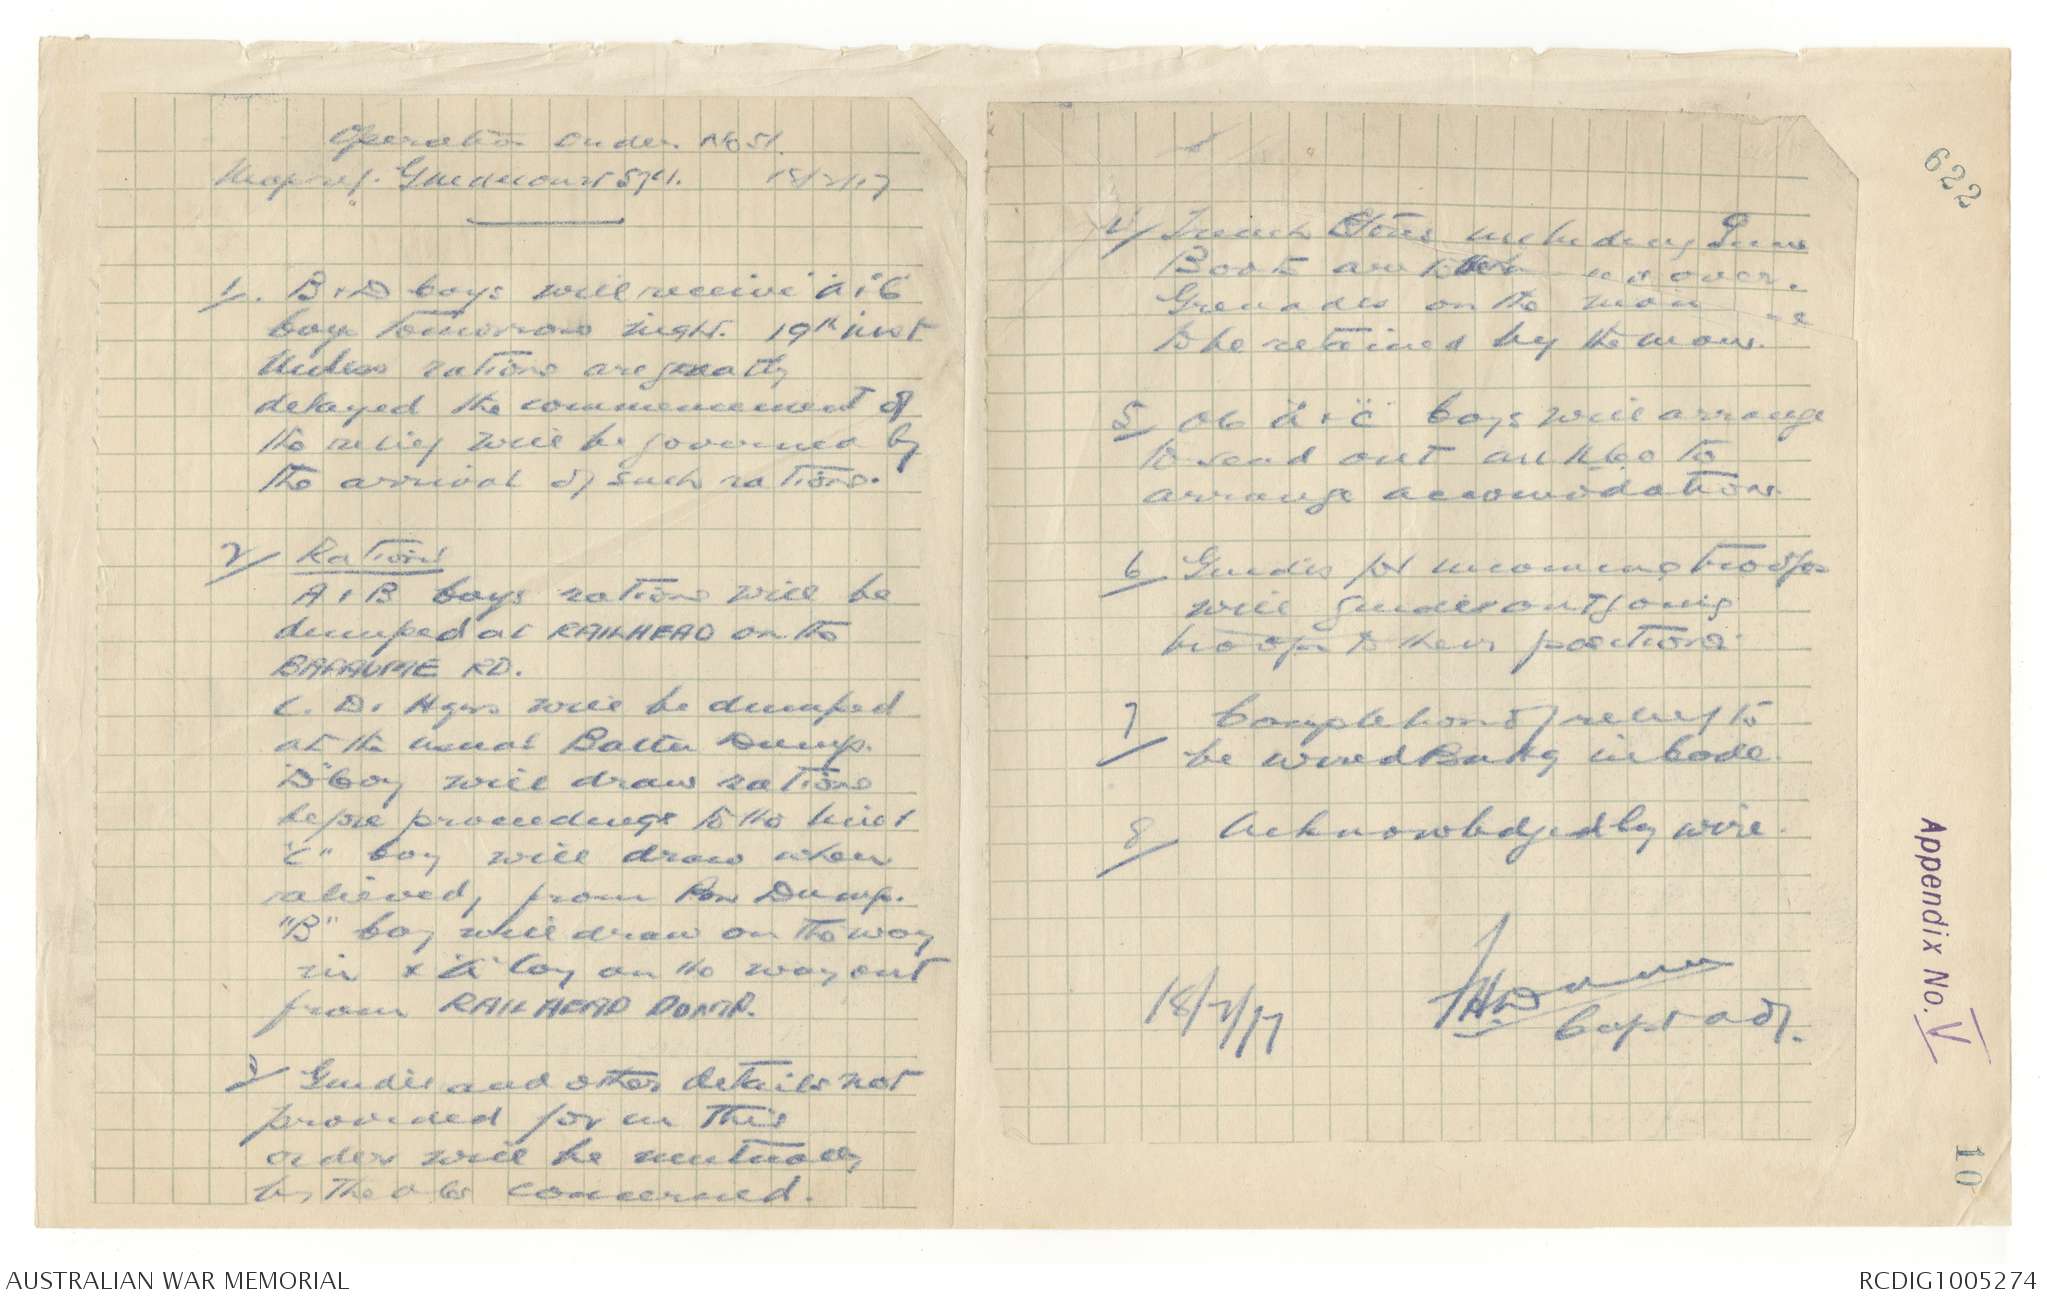 Operation Order No 51.
Map ref. Gueudecourt 18/2/17
1. B & D Coys will receive "A" & "C"
Coys tomorrow night. 19th inst
Unless rations are greatly
delayed the commencement of
the relief will be governed by
the arrival of such rations.
2/ Rations
A & B Coys rations will be
dumped at RAILHEAD on the
BAPAUME RD.
C. D. Hqrs will be dumped
at the usual Battn Dump.
"D" Coy will draw rations
before proceeding to the line
"C" Coy will draw when
relieved, from Bn Dump.
"B" Coy will draw on the way
in & "A" Coy on the way out
from RAILHEAD DUMP.
3/ Guides and other details not
provided for in this
order will be mutually
by the O's C concerned.
4/ Trench Stores including Gum
Boots are to over.
Grenades on the man
to be retained by the man.
5/ OC "A" & "C" Coys will arrange
to send out an NCO to
arrange accomodations.
6/ Guides for incoming troops
will guide outgoing
troops to their positions.
7/ Completion of relief to
be wired Bn Hq in Code.
8/ Acknowledged by wire.
18/2/17
Capt adj.
622
Appendix No. V
10
AUSTRALIAN WAR MEMORIAL
RCDIG1005274